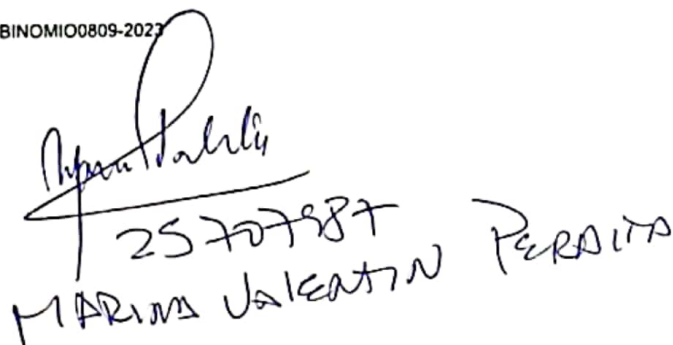 BINOMIO0809-2023
25707987
MARINA VALENTIN PERALTA